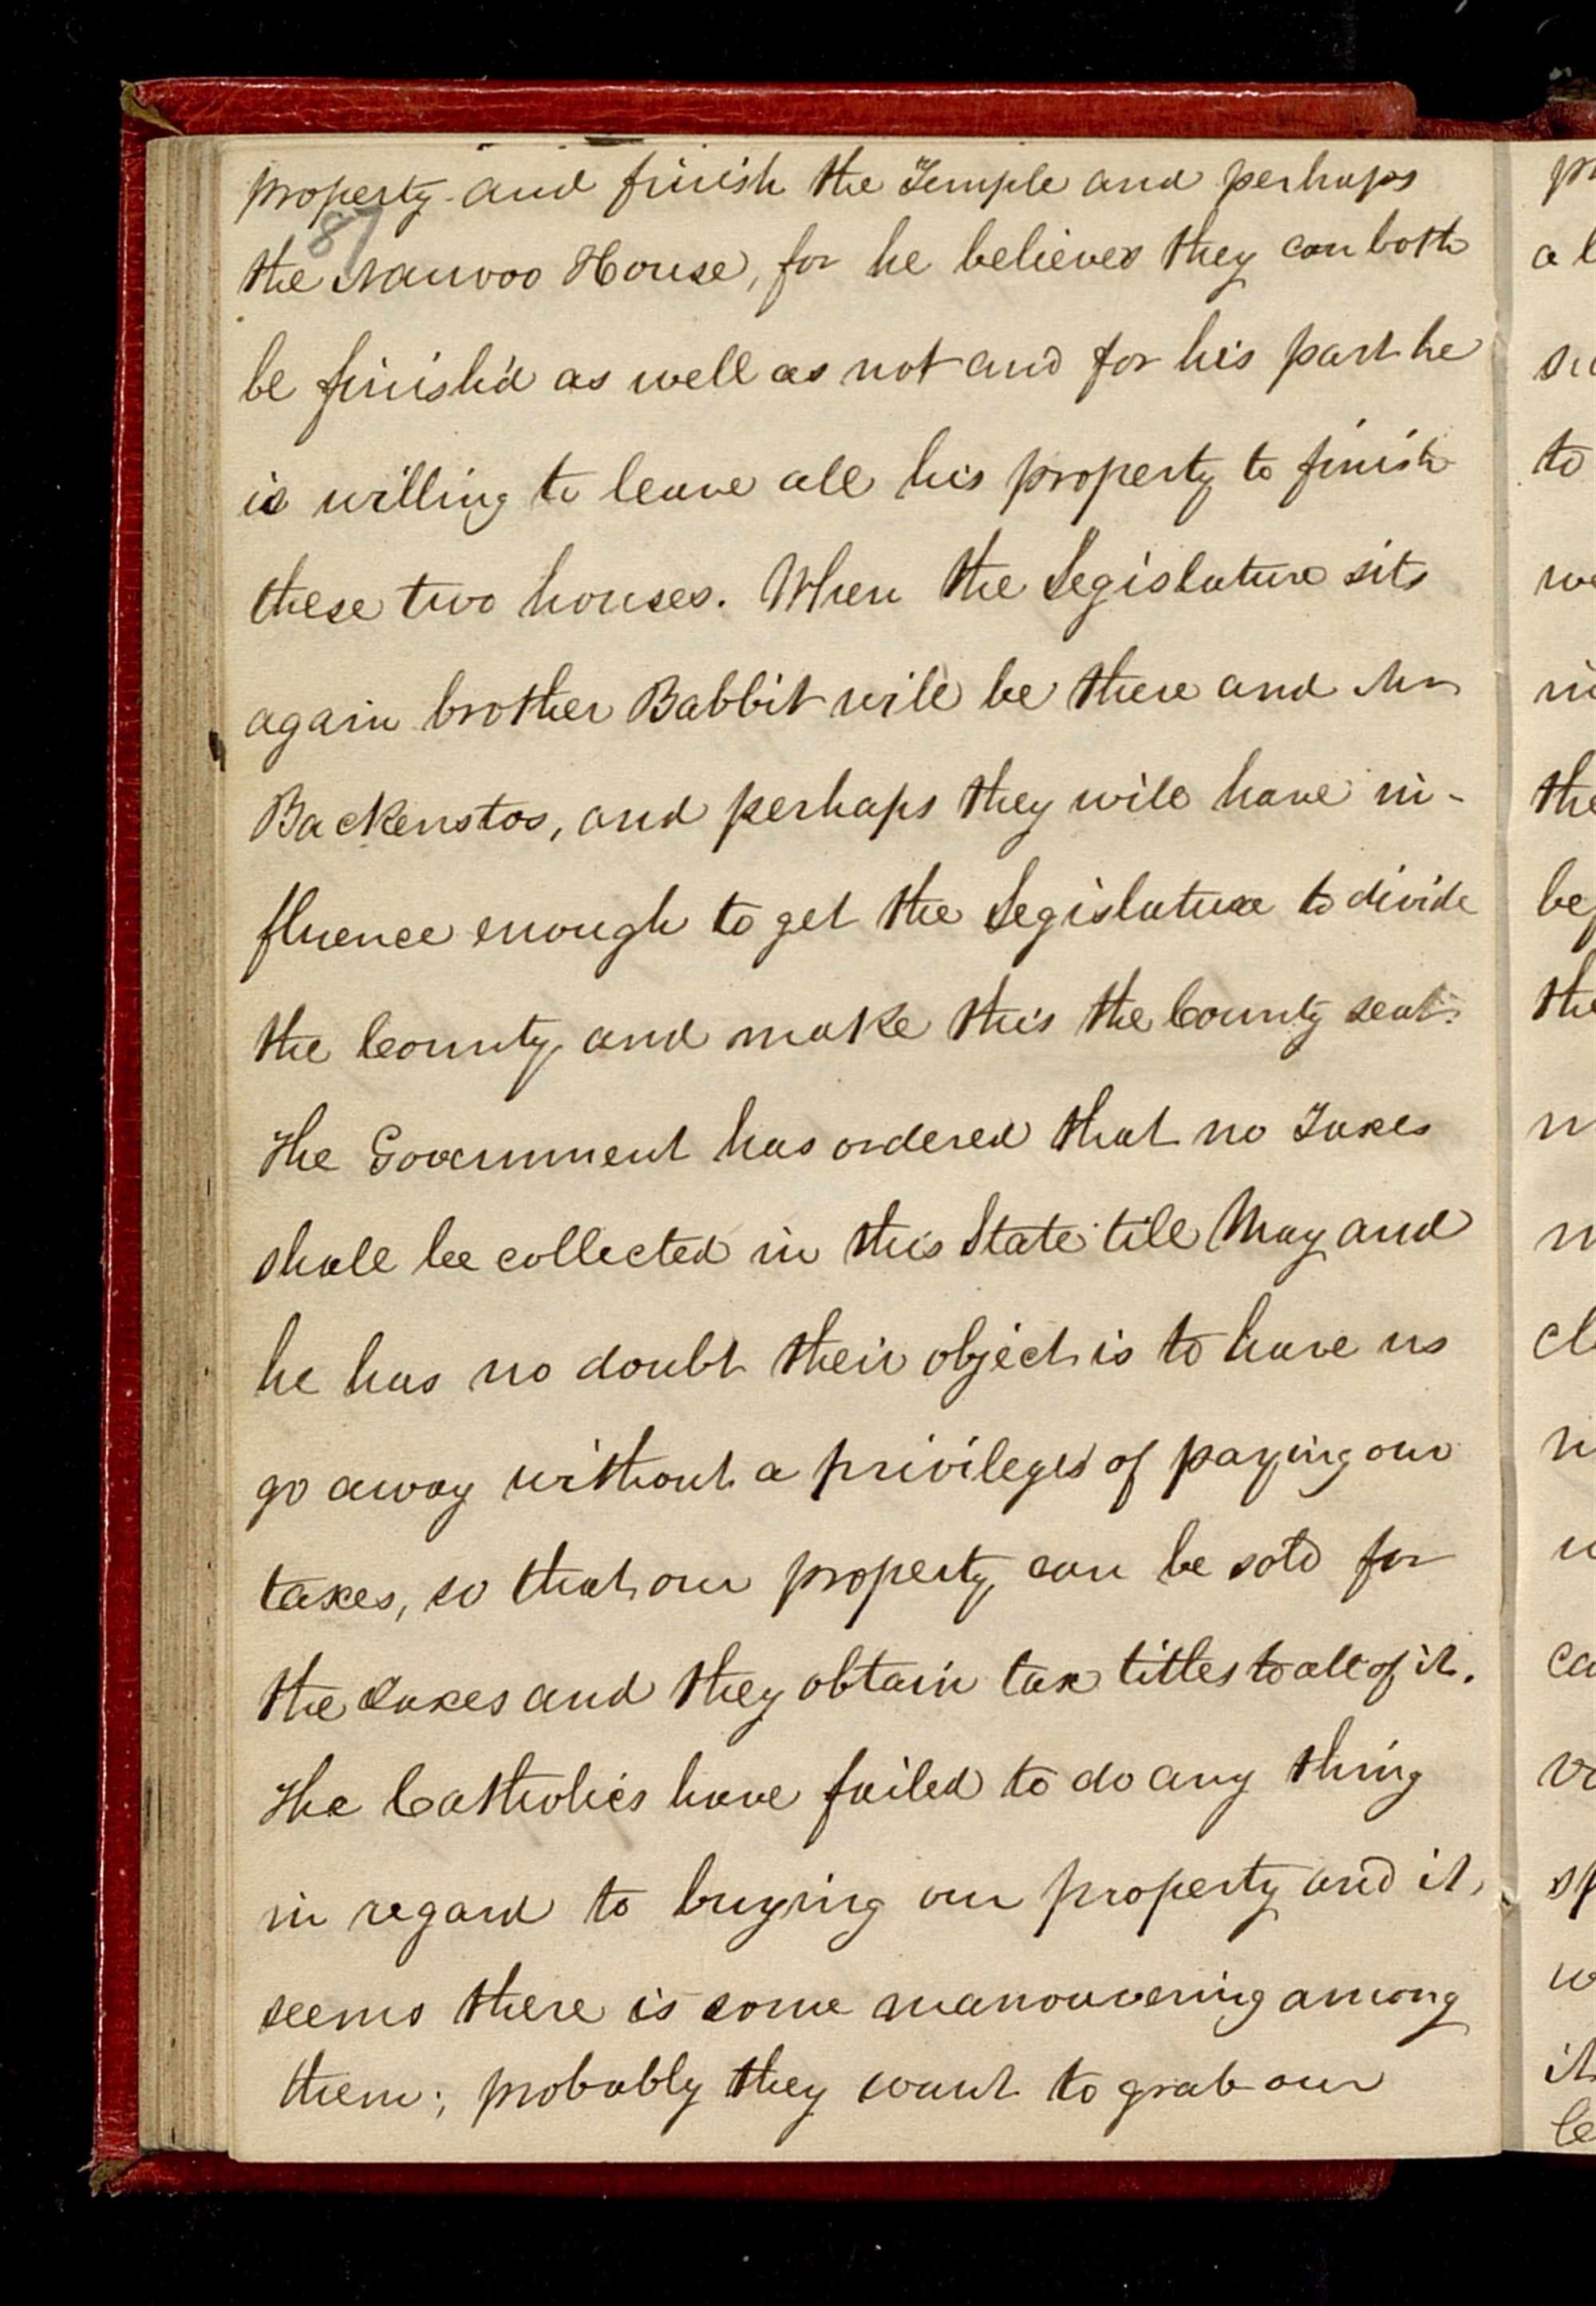 property and finish the Temple and perhaps
87
the Nauvoo House, for he believes they can both
be finish'd as well as not and for his part he
is willing to leave all his property to finish
these two houses. When the Legislature sits
again brother Babbit will be there and Mr
Backenstos, and perhaps they will have in-
fluence enough to get the Legislature to divide
the County and make this the County seat.
The Government has ordered that no Taxes
shall be collected in this State till May and
he has no doubt their object is to have us
go away without a privileges of paying our
taxes, so that our property can be sold for
the taxes and they obtain tax titles to all of it.
The Catholics have failed to do any thing
in regard to buying our property and it
seems there is some manouvering among
them; probably they want to grab our
pr
a l
to
we
the
be
the
m
cl
ca
sp
w
it